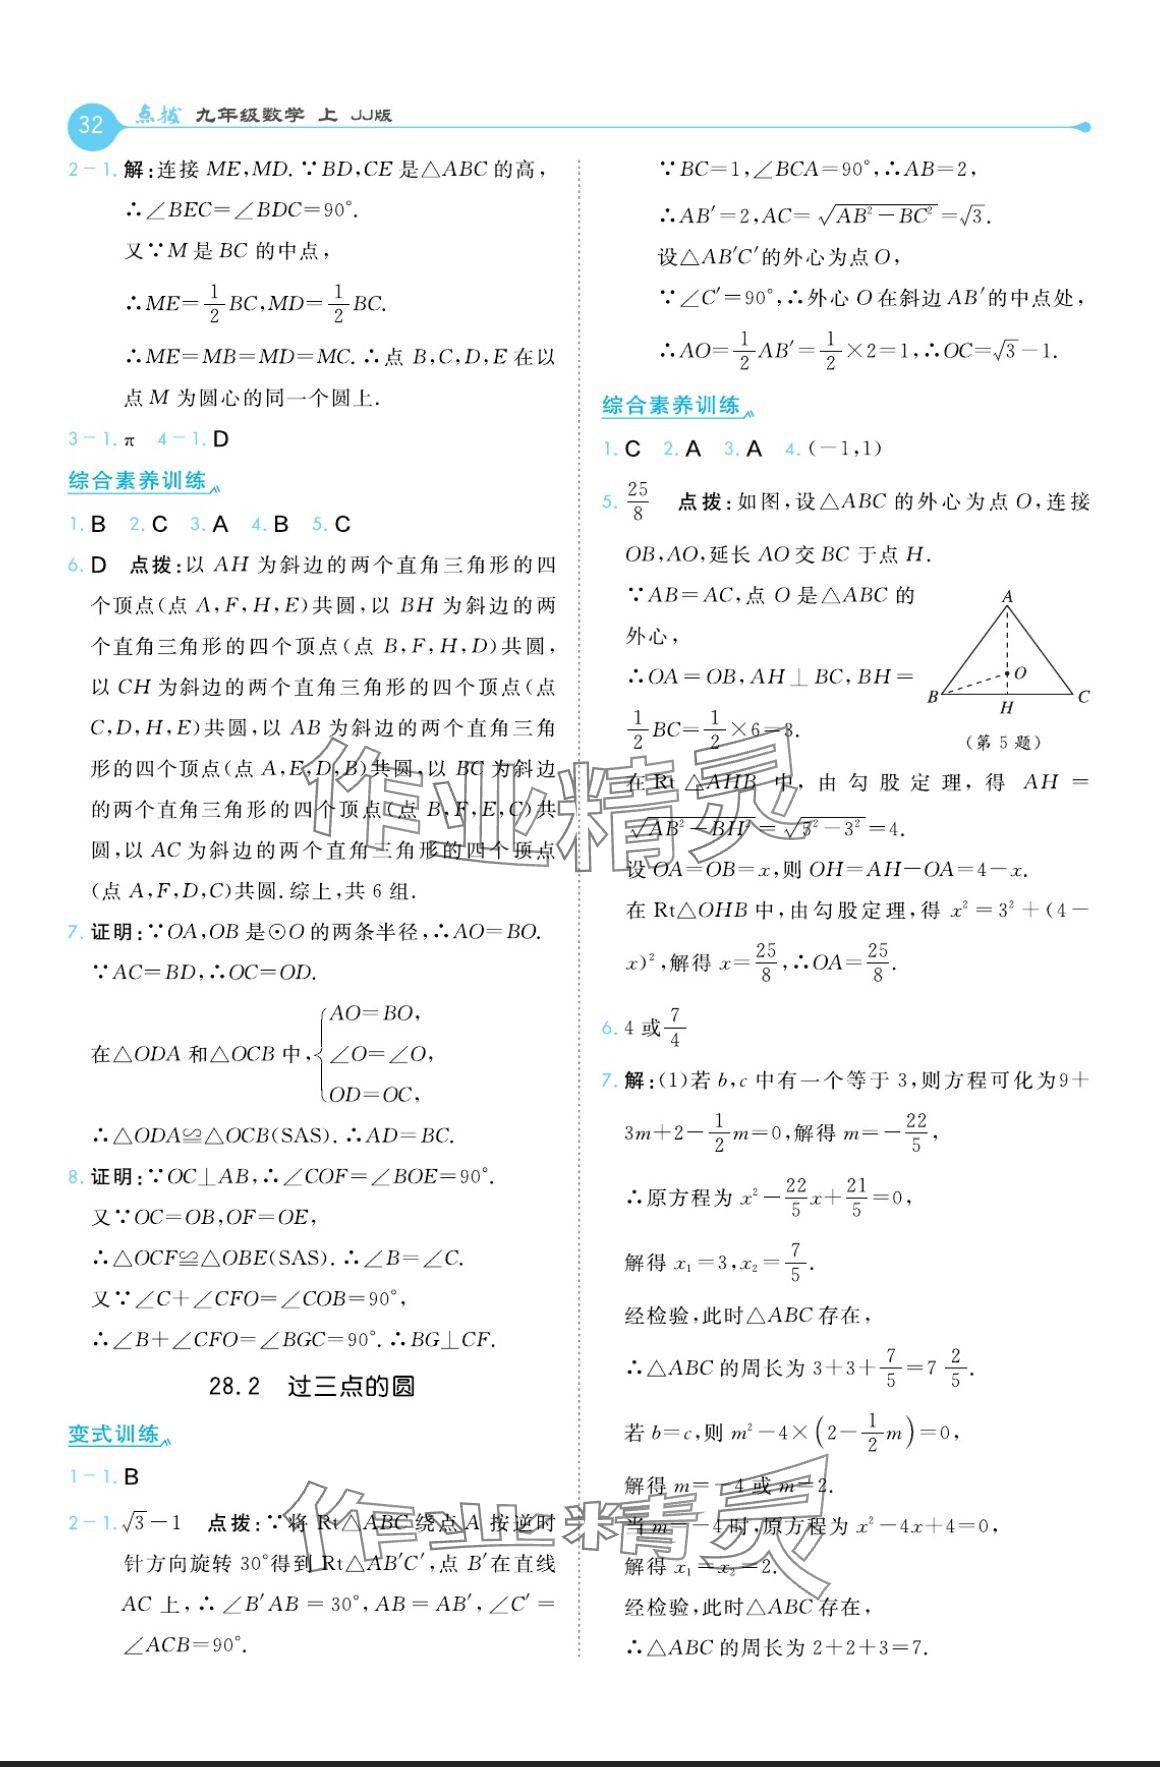 32 点拨 九年级数学 上 JJ版
2-1. 解:连接 ME,MD. ∵BD,CE 是△ABC 的高,
∴∠BEC=∠BDC=90°.
又∵M 是 BC 的中点,
∴ME=1/2 BC,MD=1/2 BC.
∴ME=MB=MD=MC. ∴点 B,C,D,E 在以
点 M 为圆心的同一个圆上.
3-1. π 4-1. D
综合素养训练
1. B 2. C 3. A 4. B 5. C
6. D 点拨:以 AH 为斜边的两个直角三角形的四
个顶点(点 A,F,H,E)共圆,以 BH 为斜边的两
个直角三角形的四个顶点(点 B,F,H,D)共圆,
以 CH 为斜边的两个直角三角形的四个顶点(点
C,D,H,E)共圆,以 AB 为斜边的两个直角三角
形的四个顶点(点 A,E,D,B)共圆,以 BC 为斜边
的两个直角三角形的四个顶点(点 B,F,E,C)共
圆,以 AC 为斜边的两个直角三角形的四个顶点
(点 A,F,D,C)共圆.综上,共 6 组.
7. 证明:∵OA,OB 是⊙O 的两条半径,∴AO=BO.
∵AC=BD,∴OC=OD.
在△ODA 和△OCB 中,{AO=BO,
∠O=∠O,
OD=OC,
∴△ODA≌△OCB(SAS). ∴AD=BC.
8. 证明:∵OC⊥AB,∴∠COF=∠BOE=90°.
又∵OC=OB,OF=OE,
∴△OCF≌△OBE(SAS). ∴∠B=∠C.
又∵∠C+∠CFO=∠COB=90°,
∴∠B+∠CFO=∠BGC=90°. ∴BG⊥CF.
28.2 过三点的圆
变式训练
1-1. B
2-1. √3-1 点拨:∵将 Rt△ABC 绕点 A 按逆时
针方向旋转 30°得到 Rt△AB′C′,点 B′在直线
AC 上,∴∠B′AB=30°,AB=AB′,∠C′=
∠ACB=90°.
∵BC=1,∠BCA=90°,∴AB=2,
∴AB′=2,AC=√(AB²-BC²)=√3.
设△AB′C′的外心为点 O,
∵∠C′=90°,∴外心 O 在斜边 AB′的中点处,
∴AO=1/2 AB′=1/2×2=1,∴OC=√3-1.
综合素养训练
1. C 2. A 3. A 4. (-1,1)
5. 25/8 点拨:如图,设△ABC 的外心为点 O,连接
OB,AO,延长 AO 交 BC 于点 H.
∵AB=AC,点 O 是△ABC 的
外心,
∴OA=OB,AH⊥BC,BH=
1/2 BC=1/2×6=3.
A
O
B
H
C
(第 5 题)
在 Rt△AHB 中,由勾股定理,得 AH=
√(AB²-BH²)=√(5²-3²)=4.
设 OA=OB=x,则 OH=AH-OA=4-x.
在 Rt△OHB 中,由勾股定理,得 x²=3²+(4-
x)²,解得 x=25/8,∴OA=25/8.
6. 4 或 7/4
7. 解:(1)若 b,c 中有一个等于 3,则方程可化为9+
3m+2-1/2 m=0,解得 m=-22/5,
∴原方程为 x²-22/5 x+21/5=0,
解得 x₁=3,x₂=7/5.
经检验,此时△ABC 存在,
∴△ABC 的周长为 3+3+7/5=7 2/5.
若 b=c,则 m²-4×(2-1/2 m)=0,
解得 m=-4 或 m=2.
当 m=-4 时,原方程为 x²-4x+4=0,
解得 x₁=x₂=2.
经检验,此时△ABC 存在,
∴△ABC 的周长为 2+2+3=7.
作业精灵
作业精灵